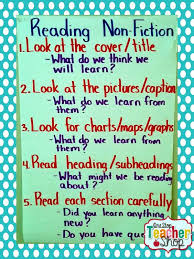 Reading Non-Fiction
1. Look at the cover/title
- What do we think we
will learn?
2. Look at the pictures/caption
- What do we learn from
them?
3. Look for charts/maps/graphs
- What do we learn from
them?
4. Read heading/subheadings
- What might we be reading
about?
5. Read each section carefully
- Did you learn anything
new?
- Do you have que
One Stop
Teacher
Shop